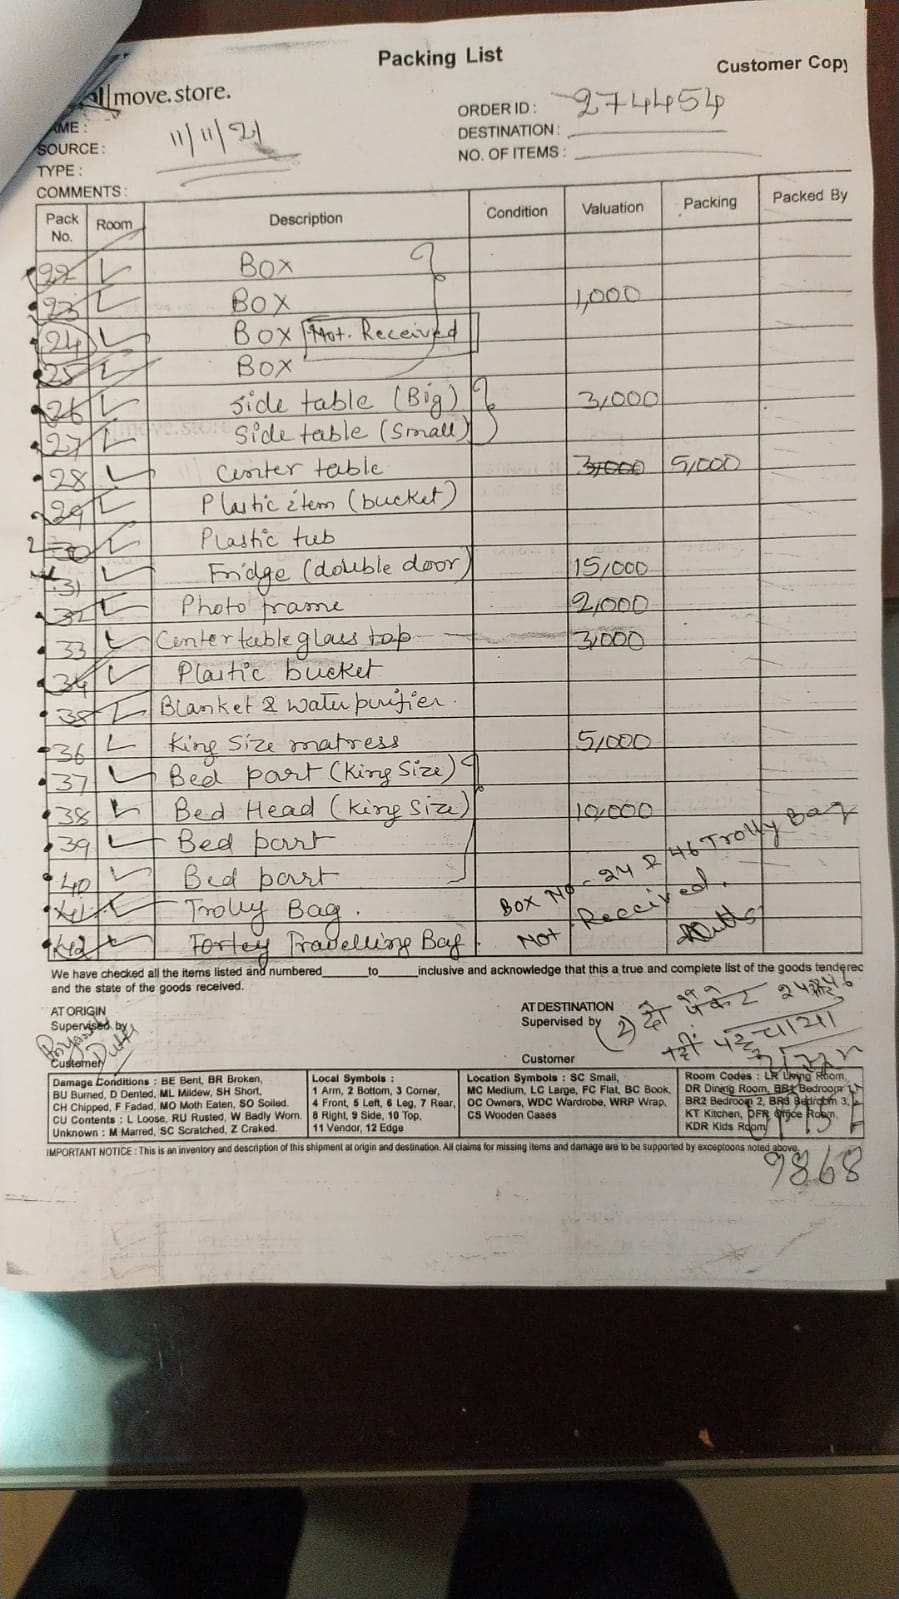 Packing List
Customer Copy
move.store.
ORDER ID : 274454
AME :
DESTINATION :
SOURCE : 11/11/21
NO. OF ITEMS :
TYPE :
COMMENTS :
Pack No. Room Description Condition Valuation Packing Packed By
22 Box
23 Box 1,000
24 Box Not. Received
25 Box
26 Side table (Big) 3,000
27 Side table (Small)
28 Center table 3,000 5,000
29 Plastic item (bucket)
30 Plastic tub
31 Fridge (double door) 15,000
32 Photo frame 2,000
33 Center table glass top 3,000
34 Plastic bucket
35 Blanket & water purifier.
36 King Size matress 5,000
37 Bed part (King Size)
38 Bed Head (King Size) 10,000
39 Bed part
40 Bed part
41 Trolly Bag.
42 Travelling Bag.
Box No - 24 & 46 Trolly Bag
Not Received.
We have checked all the items listed and numbered______to_____inclusive and acknowledge that this a true and complete list of the goods tenderec
and the state of the goods received.
AT ORIGIN
Supervised by
Customer
AT DESTINATION
Supervised by
Customer
(2) दो पैकेट 24 46
नहीं
Damage Conditions : BE Bent, BR Broken,
BU Burned, D Dented, ML Mildew, SH Short,
CH Chipped, F Fadad, MO Moth Eaten, SO Soiled.
CU Contents : L Loose, RU Rusted, W Badly Worn.
Unknown : M Marred, SC Scratched, Z Craked.
Local Symbols :
1 Arm, 2 Bottom, 3 Corner,
4 Front, 5 Left, 6 Leg, 7 Rear,
8 Right, 9 Side, 10 Top,
11 Vendor, 12 Edge
Location Symbols : SC Small,
MC Medium, LC Large, FC Flat, BC Book,
OC Owners, WDC Wardrobe, WRP Wrap,
CS Wooden Cases
Room Codes : LR Living Room,
DR Dining Room, BR1 Bedroom 1,
BR2 Bedroom 2, BR3 Bedroom 3,
KT Kitchen, OFR Office Room,
KDR Kids Room
IMPORTANT NOTICE : This is an inventory and description of this shipment at origin and destination. All claims for missing items and damage are to be supported by exceptoons noted above.
9868